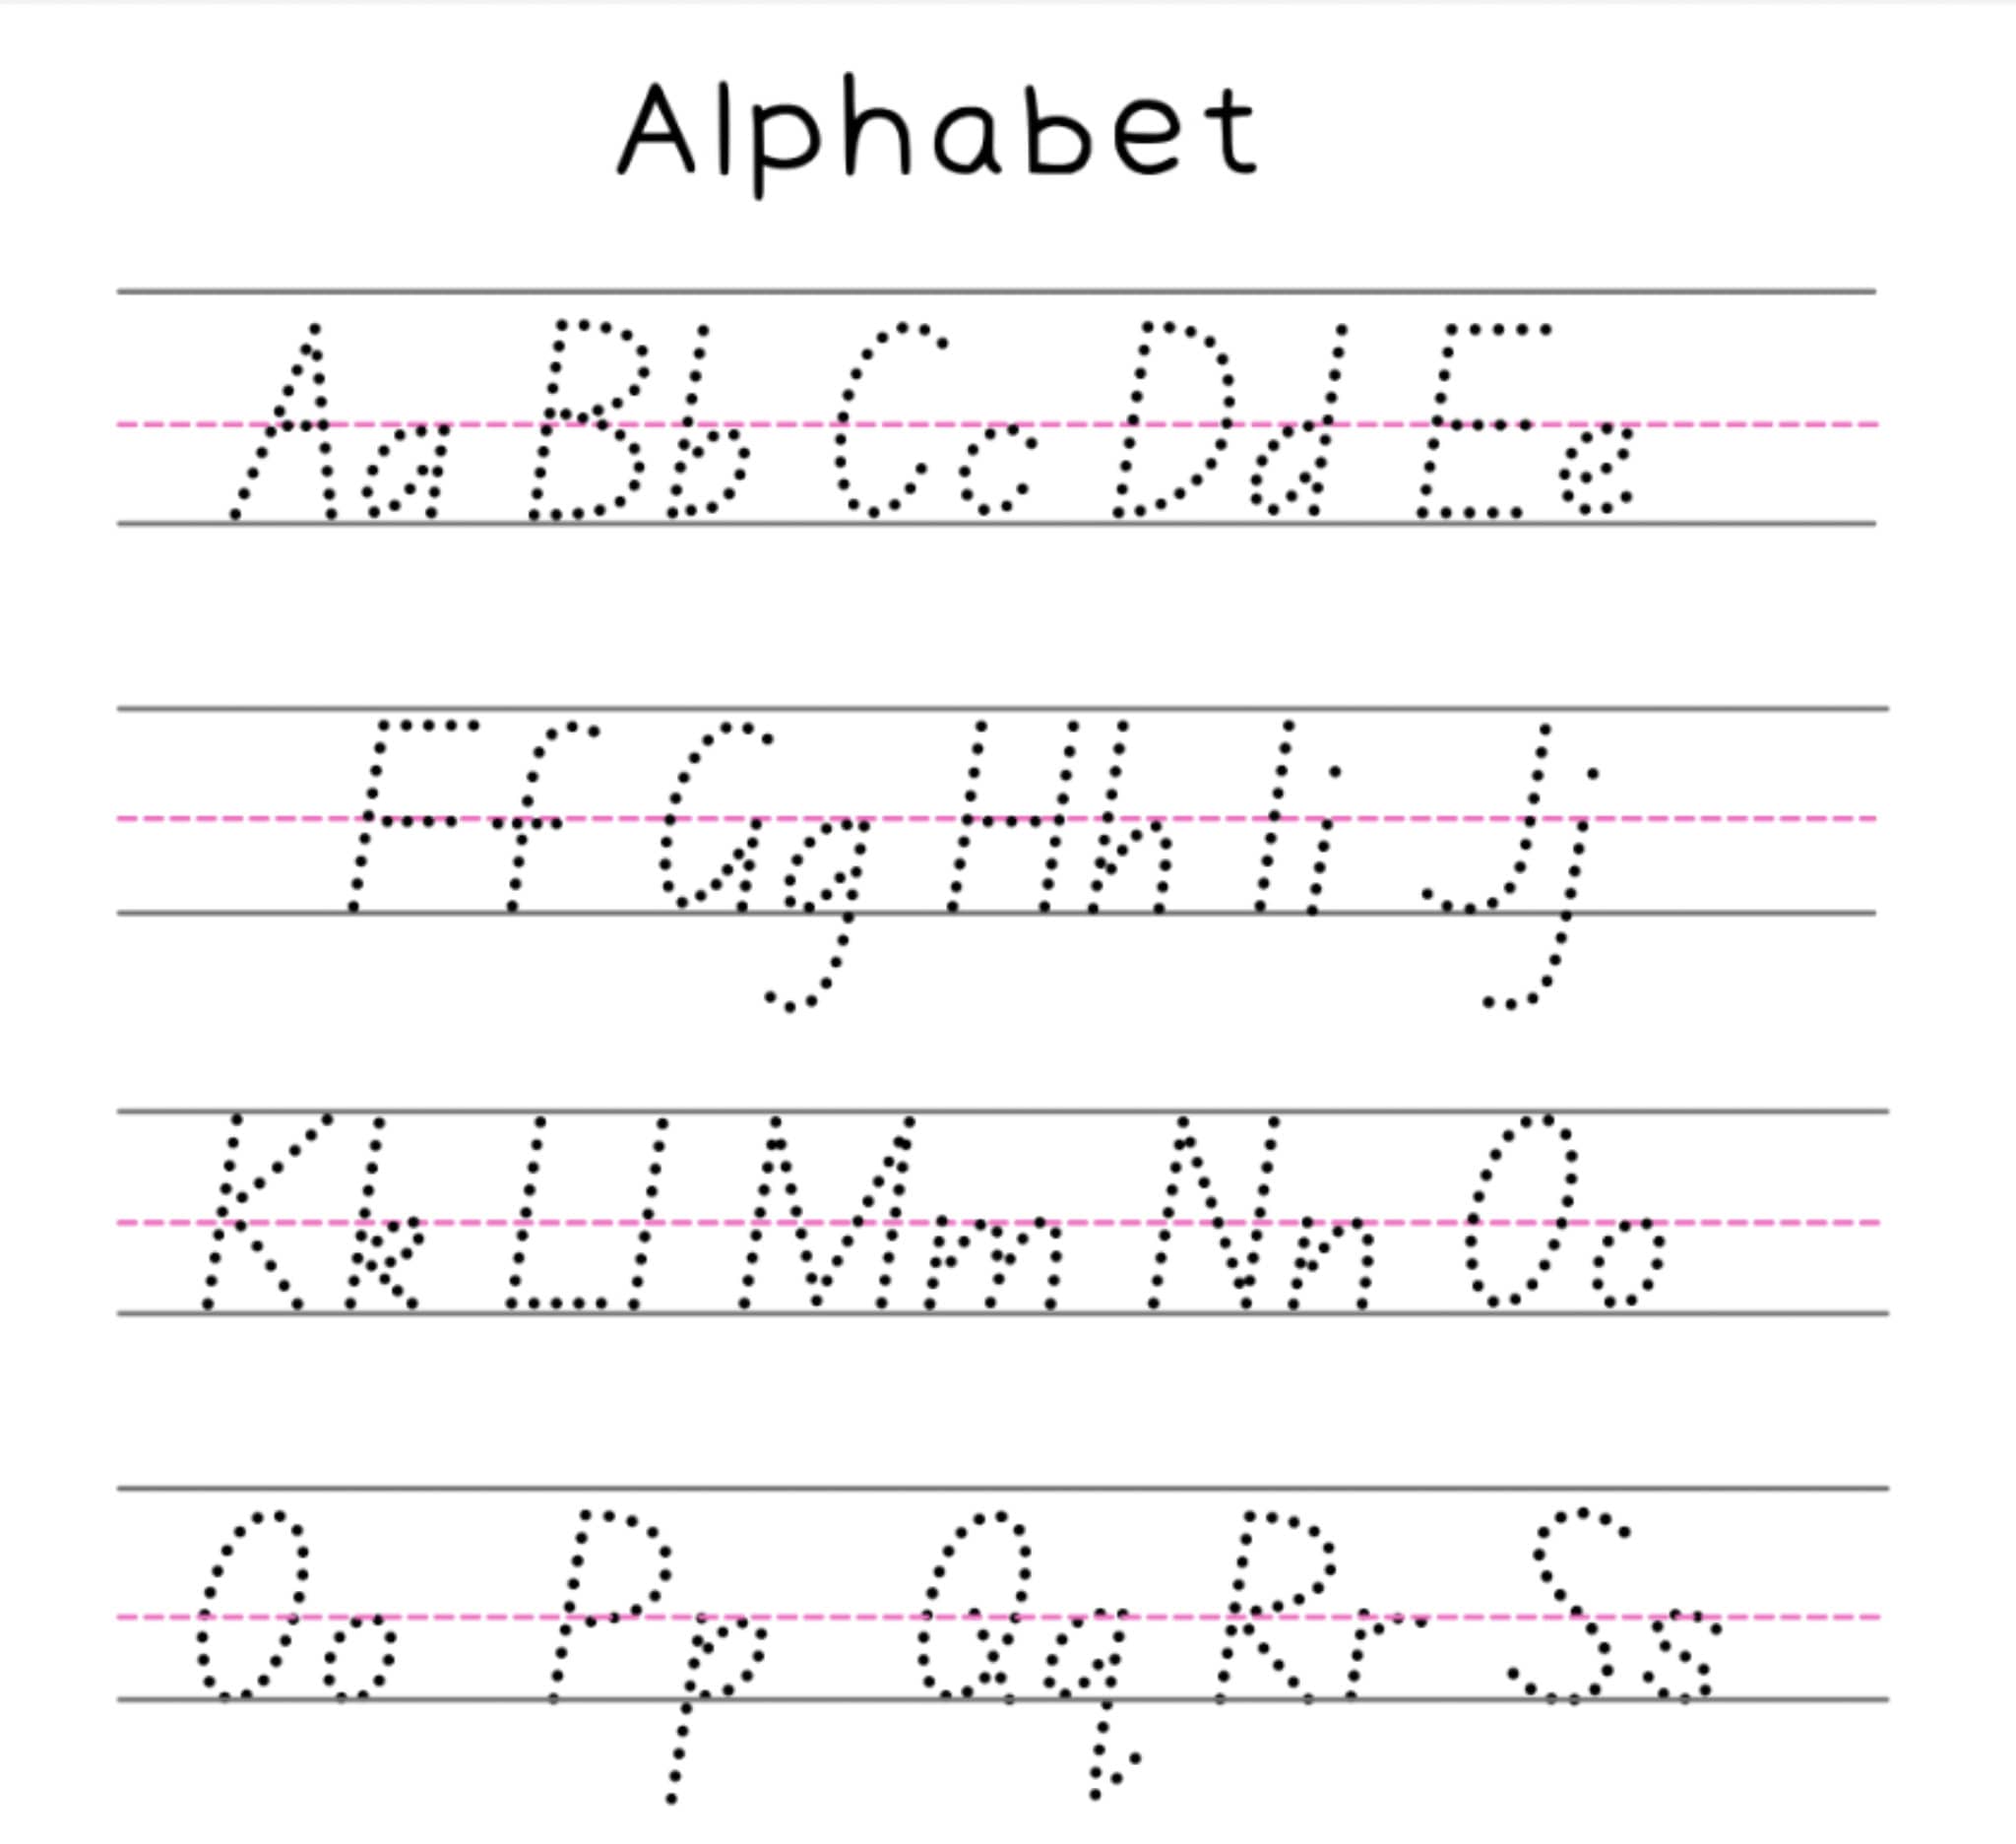 Alphabet
Aa Bb Cc Dd Ee
Ff Gg Hh Ii Jj
Kk Ll Mm Nn Oo
Oo Pp Qq Rr Ss